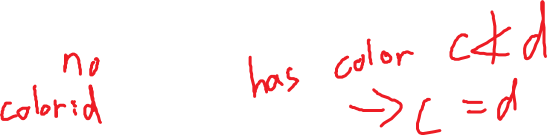 no
colorid
has color c≮d
→ c = d